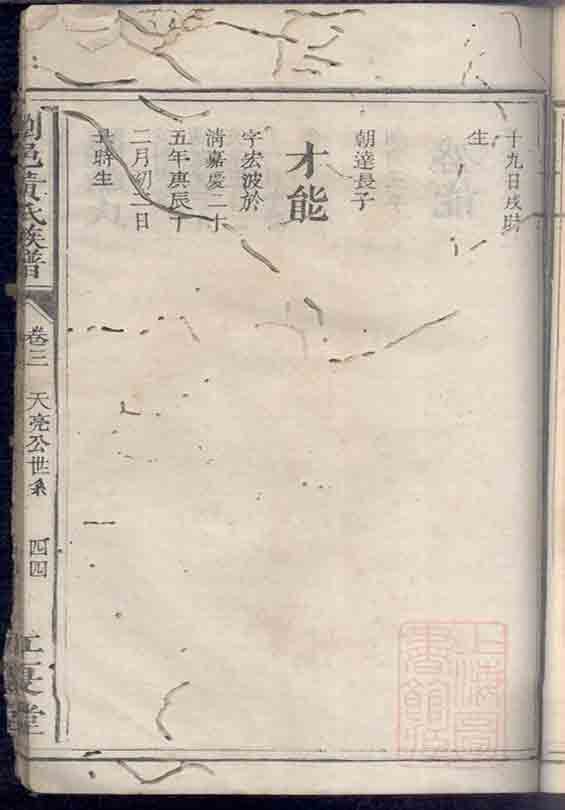 十九日戌時
生
朝達長子
才能
字宏波於
清嘉慶二十
五年庚辰十
二月初二日
時生
邑黃氏族譜
卷三
天亮公世系
四四
江夏堂
上海圖
書館